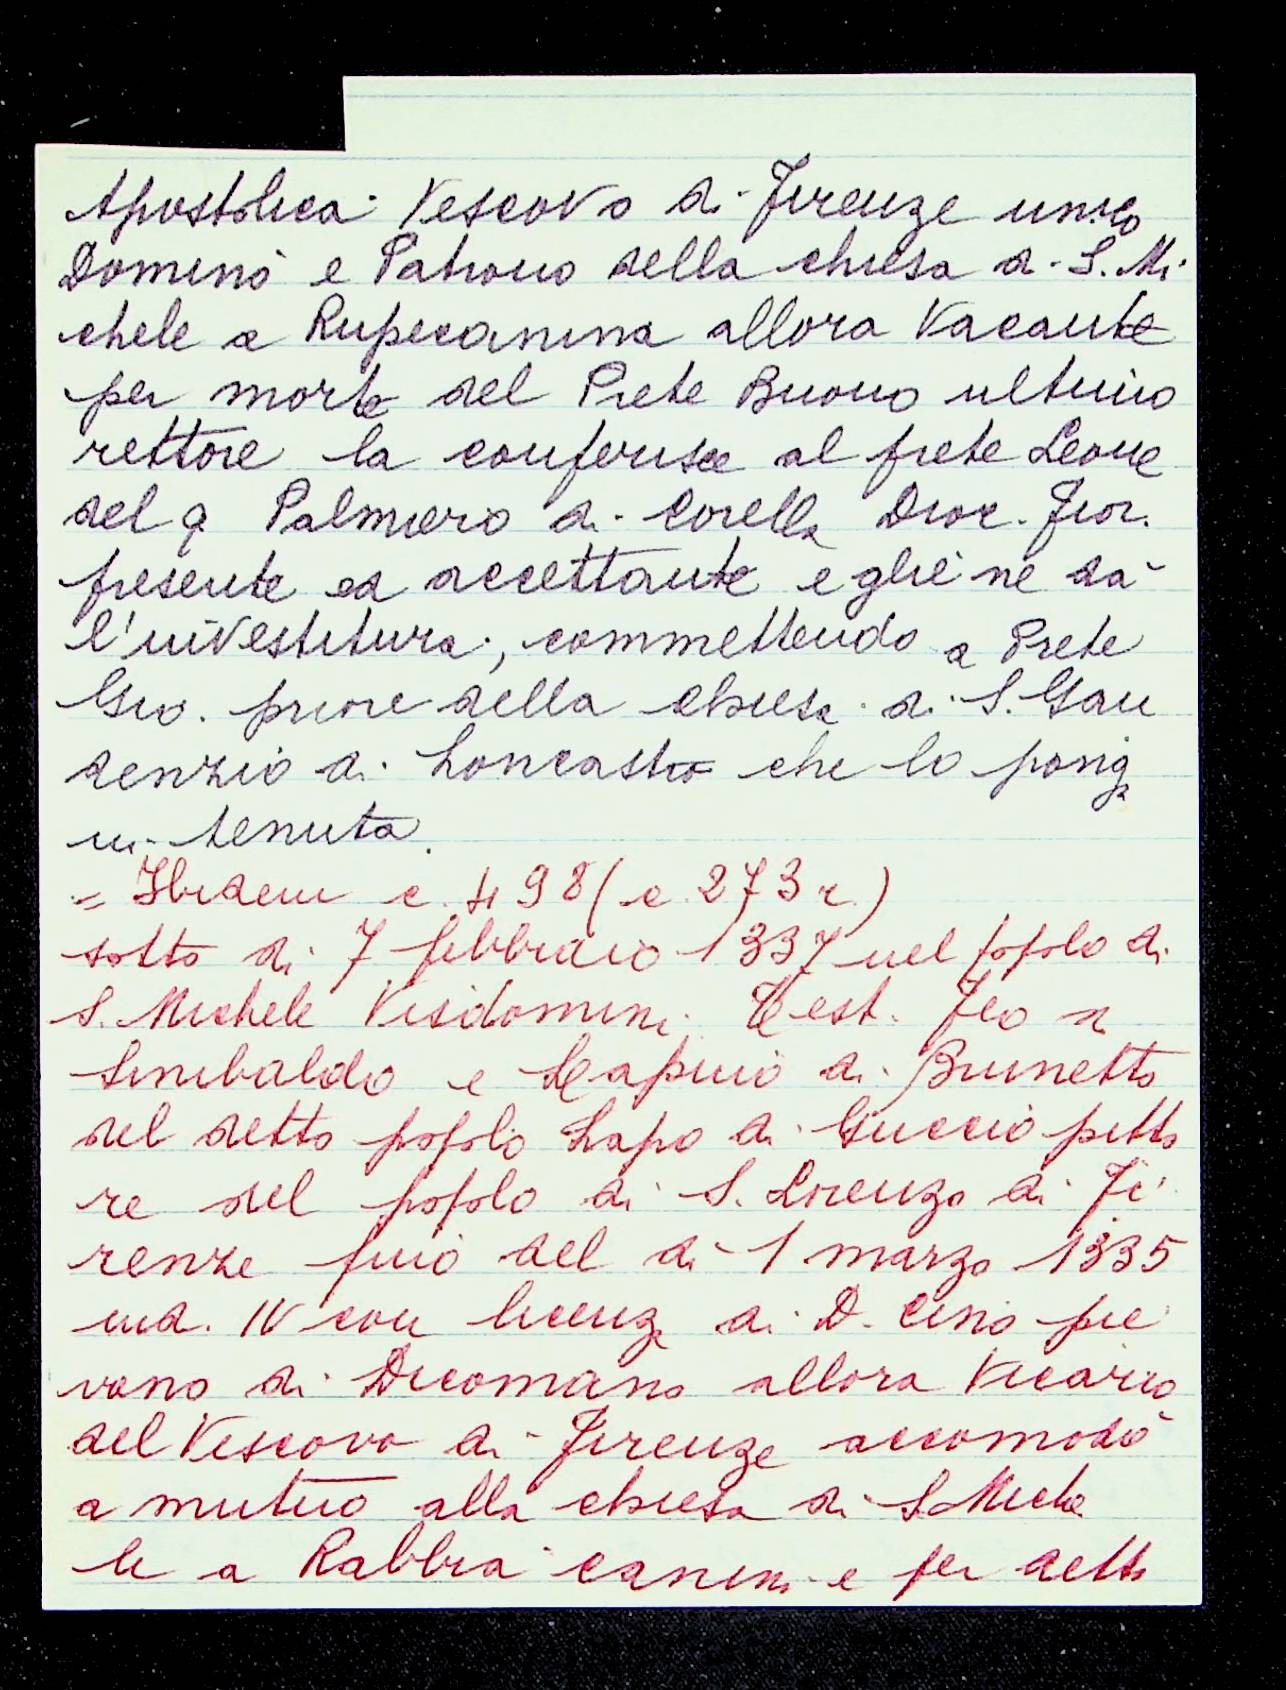 Apostolica Vescovo di Firenze unico
Domino e Patrono della chiesa di S. Mi
chele a Rupecanina allora Vacante
per morte del Prete Buono ultimo
rettore la conferisce al prete Leone
del q Palmiero di Corella Dioc. Fior.
presente ed accettante e gliè ne dà
l'investitura, commettendo a Prete
Gio. priore della chiesa di S. Gau
denzio di Loncastro che lo ponga
in tenuta.
= Ibidem c. 498 (c. 273 r.)
sotto di 7 febbraio 1337 nel popolo di
S. Michele Visdomini. Test. Feo di
Sinibaldo e Lapino di Brunetto
del detto popolo Lapo di Guccio pitto
re del popolo di S. Lorenzo di Fi
renze fino del dì 1 marzo 1335
ind. IV con licenza di D. Cino pie
vano di Dicomano allora Vicario
del Vescovo di Firenze accomodò
a mutuo alla chiesa di S. Miche
le a Rabbia canina e per detto